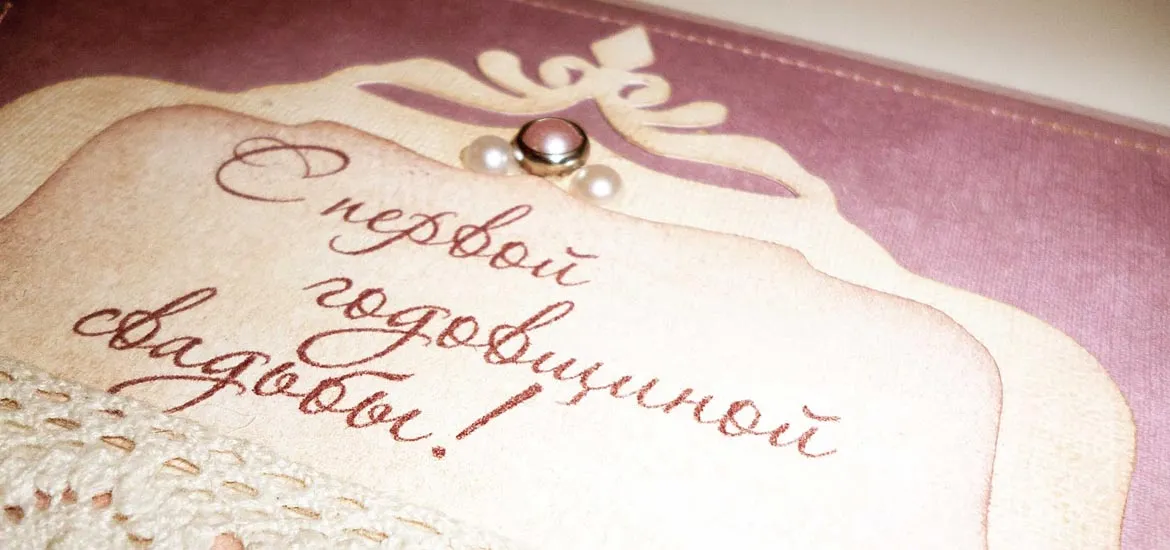 С первой
годовщиной
свадьбы!